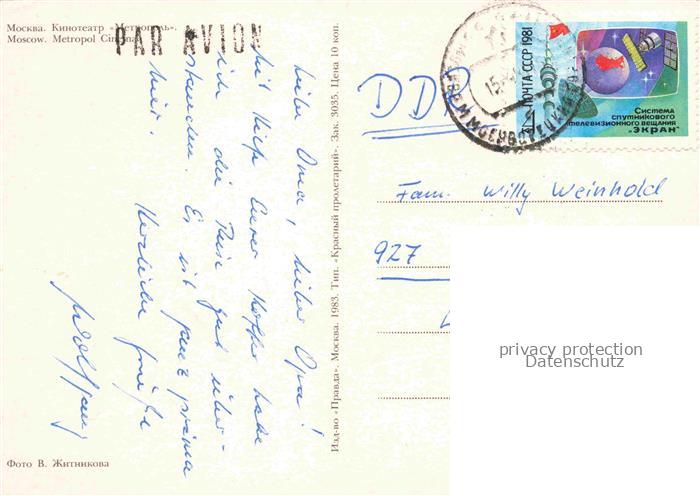 Москва. Кинотеатр «Метрополь».
Moscow. Metropol Cinema
PAR AVION
Liebe Oma, lieber Opa!
Mit Hilfe Eurer Koffer habe
ich die Reise gut über-
standen. Es ist ganz prima
hier.
Herzliche Grüße
Wolfgang
Фото В. Житникова
Изд-во «Правда». Москва. 1983. Тип. «Красный пролетарий». Зак. 3035. Цена 10 коп.
ПОЧТА СССР 1981
Система
спутникового
телевизионного вещания
"ЭКРАН"
DDR
Fam. Willy Weinhold
927
privacy protection
Datenschutz